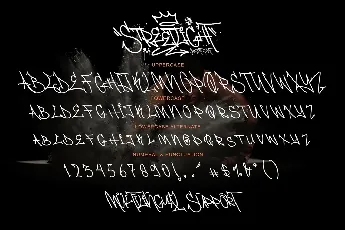 STREETLIGHT
UPPERCASE
ABCDEFGHIJKLMNOPQRSTUVWXYZ
LOWERCASE
ABCDEFGHIJKLMNOPQRSTUVWXYZ
LOWERCASE ALTERNATE
ABCDEFGHIJKLMNOPQRSTUVWXYZ
NUMERAL & PUNCTUATION
1234567890
MULTILINGUAL SUPPORT